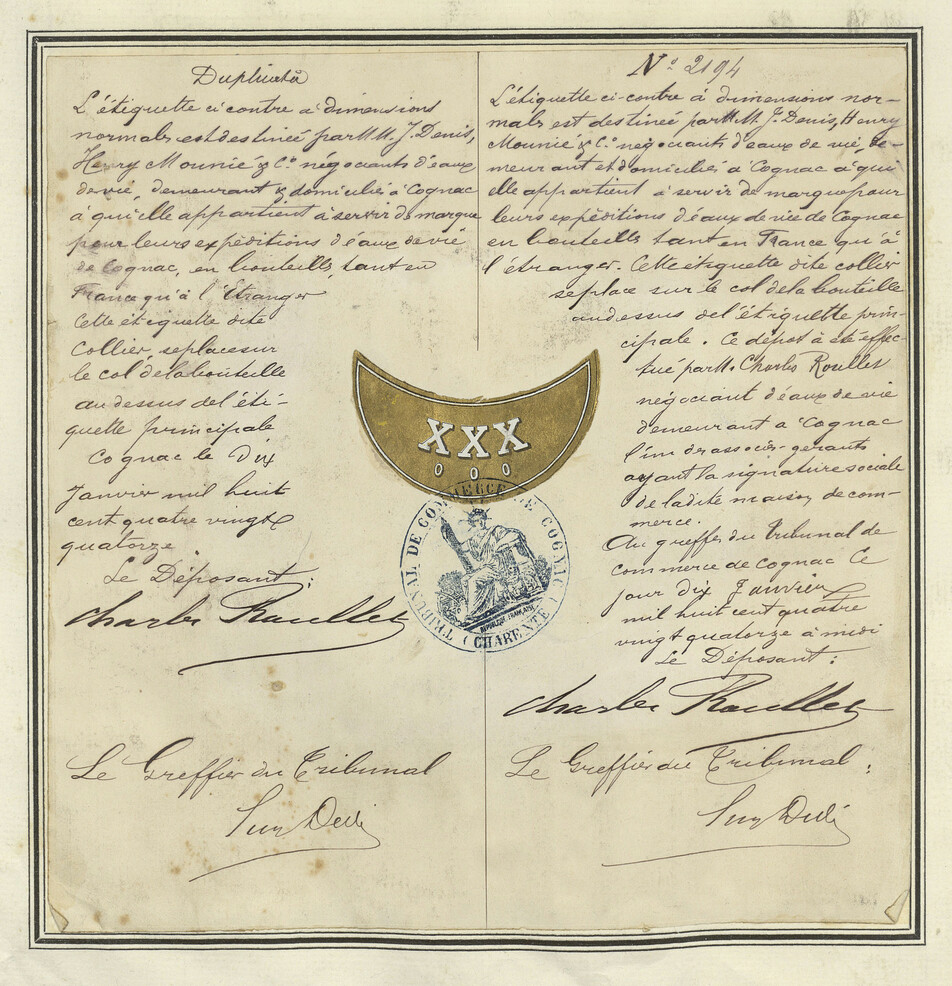 Duplicata
L'étiquette ci contre à dimensions
normales est destinée par MM. J. Denis,
Henry Mounié & Cie négociants d'eaux
de vie, demeurant & domiciliés à Cognac
à qui elle appartient à servir de marque
pour leurs expéditions d'eaux de vie
de Cognac, en bouteilles, tant en
France qu'à l'étranger
Cette étiquette dite
Collier, se place sur
le col de la bouteille
au dessus de l'éti-
quette principale
Cognac le Dix
Janvier mil huit
cent quatre vingt
quatorze
Le Déposant:
Charles Roullet
Le Greffier du Tribunal
No 2194
L'étiquette ci-contre à dimensions nor-
males est destinée par MM. J. Denis, Henry
Mounié & Cie négociants d'eaux de vie, de-
meurant et domiciliés à Cognac à qui
elle appartient à servir de marque pour
leurs expéditions d'eaux de vie de Cognac
en bouteilles tant en France qu'à
l'étranger. Cette étiquette dite collier
se place sur le col de la bouteille
au dessus de l'étiquette prin-
cipale. Ce dépôt à été effec-
tué par M. Charles Roullet
négociant d'eaux de vie
demeurant à Cognac
l'un des associés-gérants
ayant la signature sociale
de la dite maison de com-
merce.
Au greffe du Tribunal de
commerce de Cognac Ce
jour Dix Janvier
mil huit cent quatre
vingt quatorze à midi
Le Déposant:
Charles Roullet
Le Greffier du Tribunal:
XXX
000
TRIBUNAL DE COMMERCE DE COGNAC
(CHARENTE)
RÉPUBLIQUE FRANÇAISE